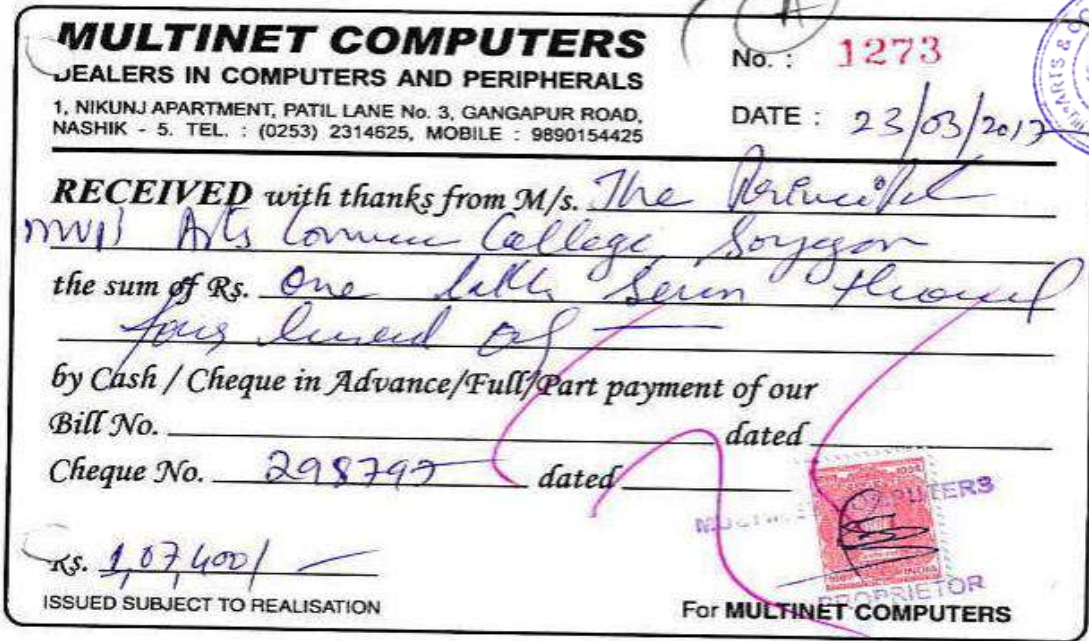 MULTINET COMPUTERS
DEALERS IN COMPUTERS AND PERIPHERALS
1, NIKUNJ APARTMENT, PATIL LANE No. 3, GANGAPUR ROAD,
NASHIK - 5. TEL. : (0253) 2314625, MOBILE : 9890154425
No. : 1273
DATE : 23/03/2017
RECEIVED with thanks from M/s. The Principal
Arts College,
the sum of Rs. One lakh Seven
four
by Cash / Cheque in Advance/Full/Part payment of our
Bill No. dated
Cheque No. 298797 dated
Rs. 1,07,400/
ISSUED SUBJECT TO REALISATION
MULTINET COMPUTERS
PROPRIETOR
For MULTINET COMPUTERS